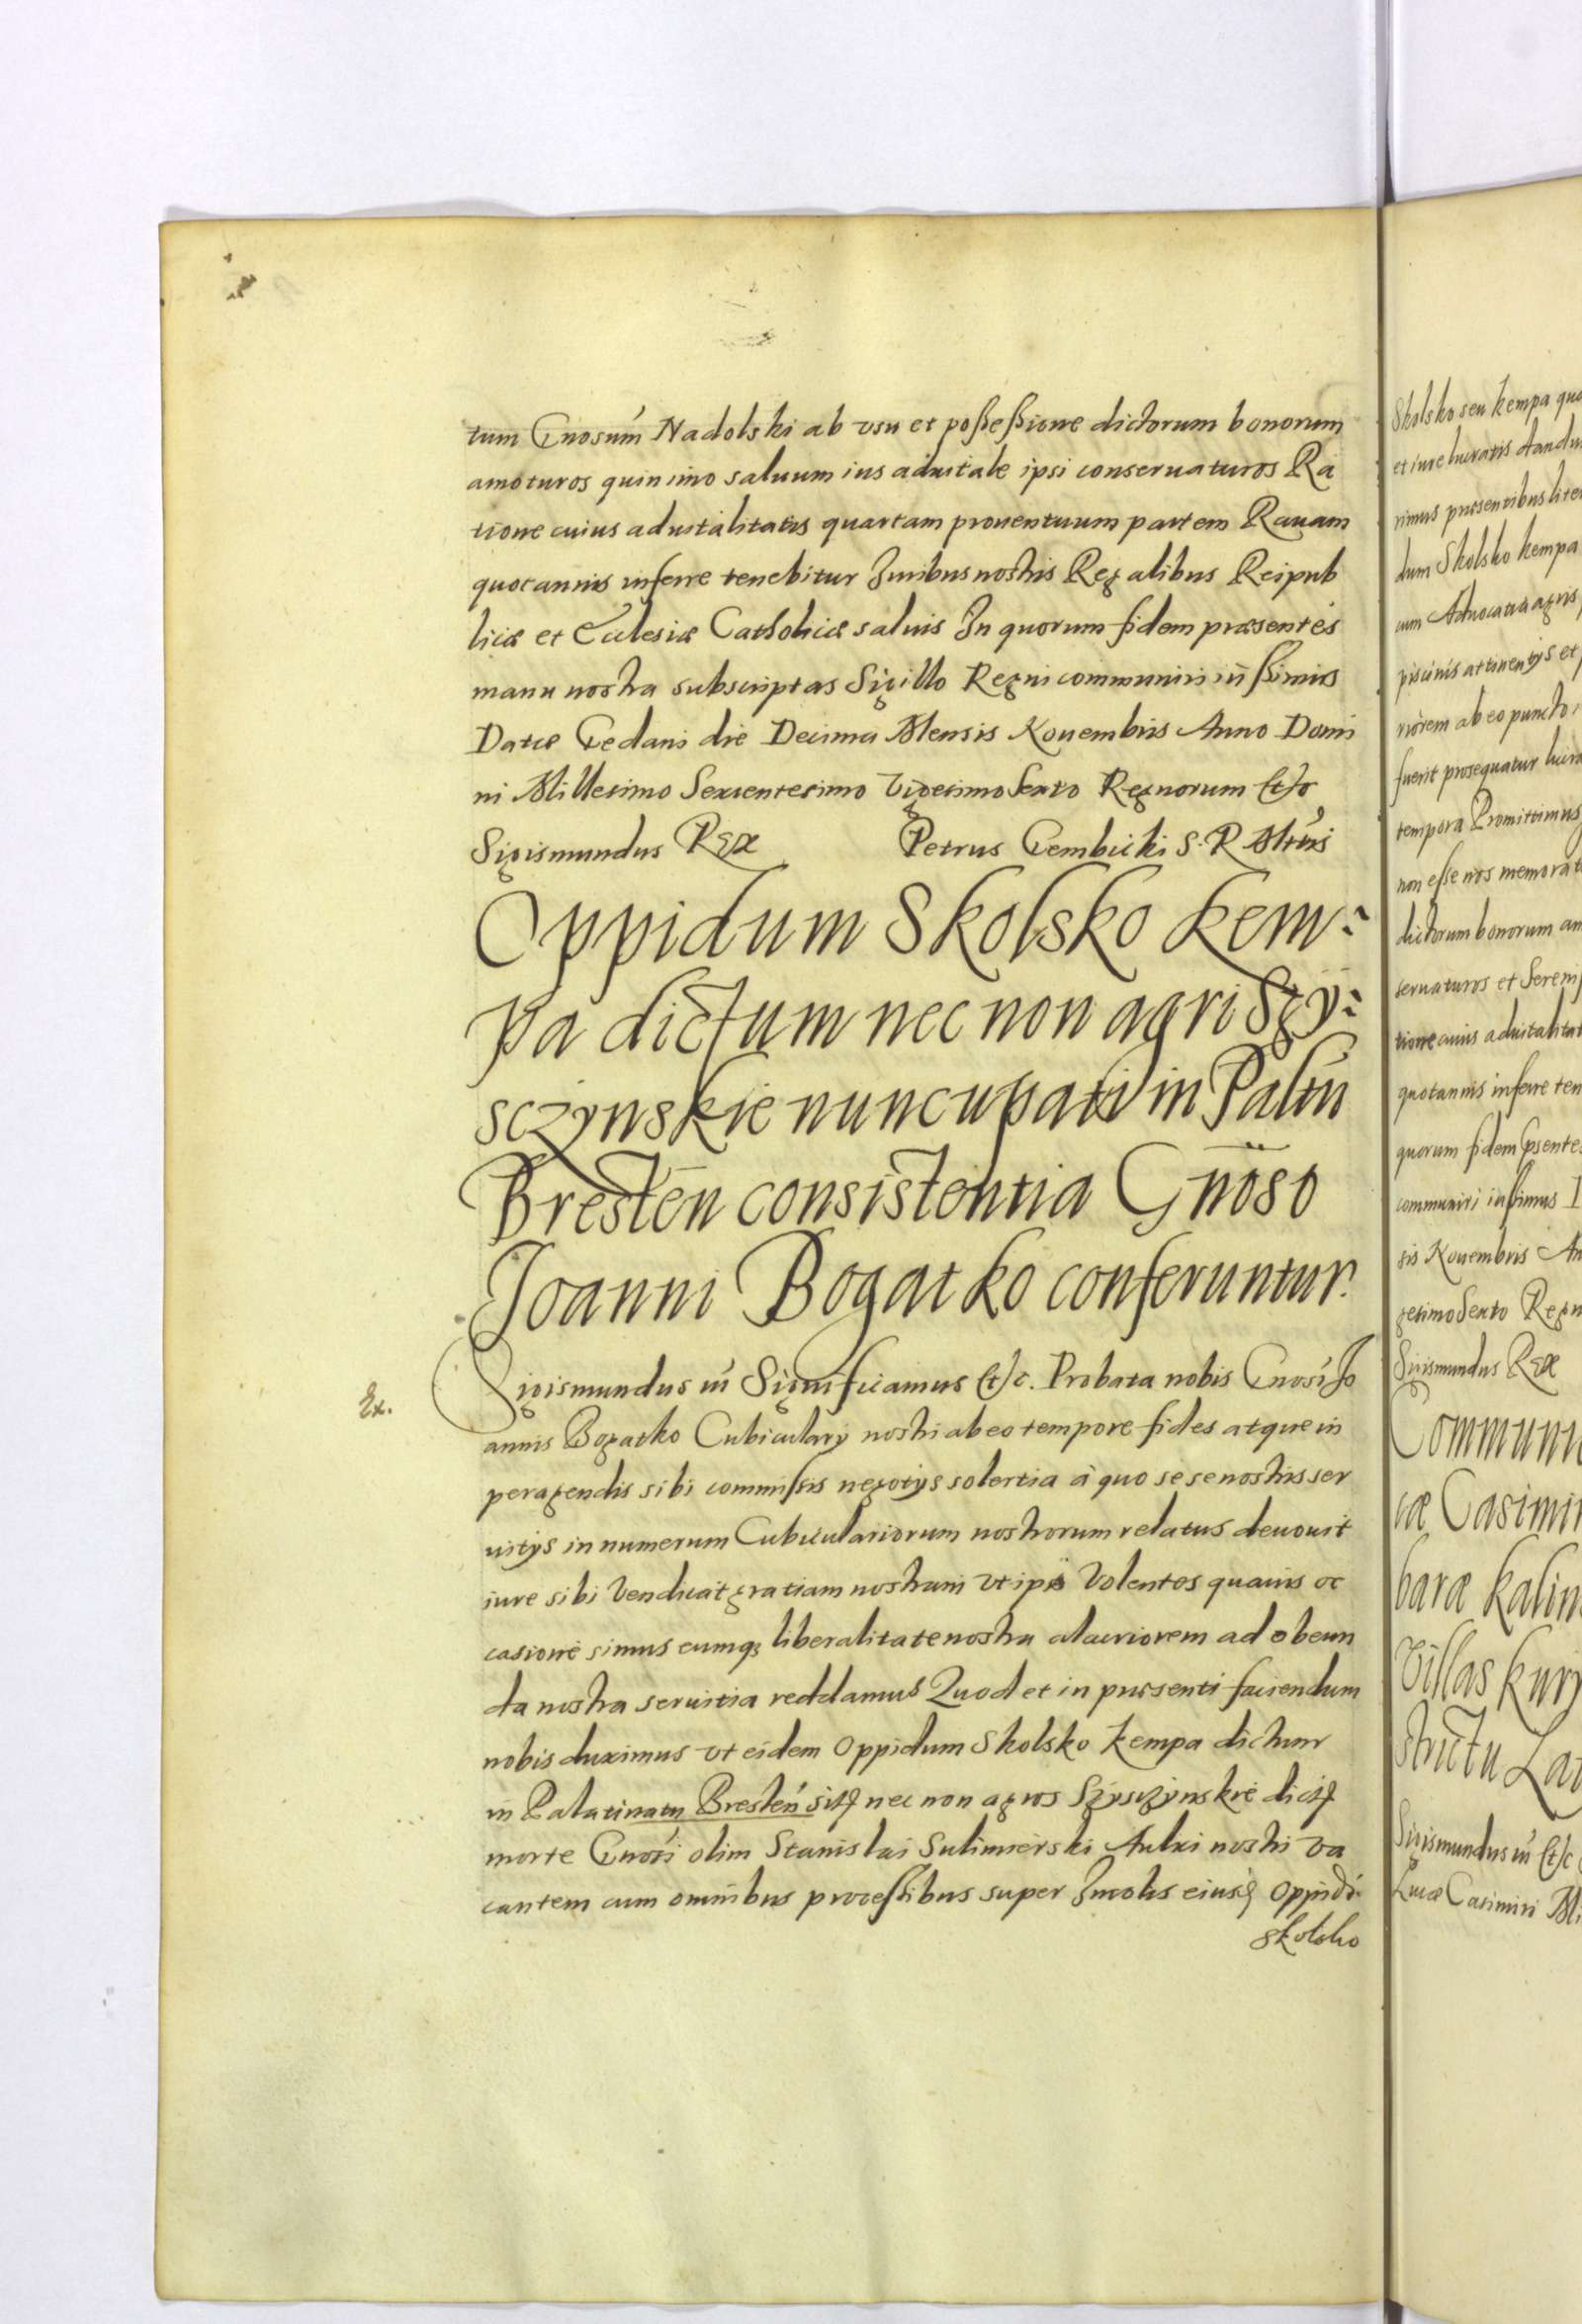 tum Gnosum Nadolski ab vsu et possessione dictorum bonorum
amoturos quinimo saluum ius aduitale ipsi conseruaturos Ra
tione cuius aduitalitatis quartam prouentuum partem Rauam
quotannis inferre tenebitur Iuribus nostris Regalibus Reipub
licæ et Ecclesiæ Catholicæ saluis In quorum fidem præsentes
manu nostra subscriptas Sigillo Regni communiri iussimus
Datæ Gedani die Decima Mensis Nouembris Anno Domi
ni Millesimo Sexcentesimo Vigesimo Sexto Regnorum etc
Sigismundus Rex Petrus Gembicki S. R. Mtis
Oppidum Skolsko Kem:
pa dictum nec non agri Szy:
sczynskie nuncupati in Paltu
Bresten consistentia Gnoso
Joanni Bogatko conferuntur.
Ex.
Sigismundus ut Significamus etc. Probata nobis Gnosi Jo
annis Bogatko Cubicularij nostri ab eo tempore fides atque in
peragendis sibi commissis negotijs solertia à quo se se nostris ser
uitijs in numerum Cubiculariorum nostrorum relatus deuouit
iure sibi Vendicat gratiam nostram vt ipsi Volentes quauis oc
casione simus eumq; liberalitate nostra alacriorem ad obeun
da nostra seruitia reddamus Quod et in præsenti faciendum
nobis duximus vt eidem Oppidum Skolsko Kempa dictum
in Palatinatu Bresten sitq nec non agros Szysczynskie dictq
morte Gnosi olim Stanislai Sulimierski Aulici nostri va
cantem cum omnibus processibus super Incolis eiusd Oppidi
Skolsko
Skolsko seu Kempa quo
et iure lucratis dandu
rimus præsentibus liter
dum Skolsko Kempa
cum Aduocatia agris
piscinis attinentijs et
riorem ab eo puncto
fuerit prosequatur lucra
tempora Promittimus
non esse nos memorat
dictorum bonorum am
seruaturos et Sereniss
tione cuius aduitalitat
quotannis inferre ten
quorum fidem psentes
communiri iussimus
sis Nouembris An
gesimo Sexto Regn
Sigismundus Rex
Communi
cæ Casimir
baræ Kalin
Villas Kury
strictu Lat
Sigismundus ut etc
Lucæ Casimiri Mi